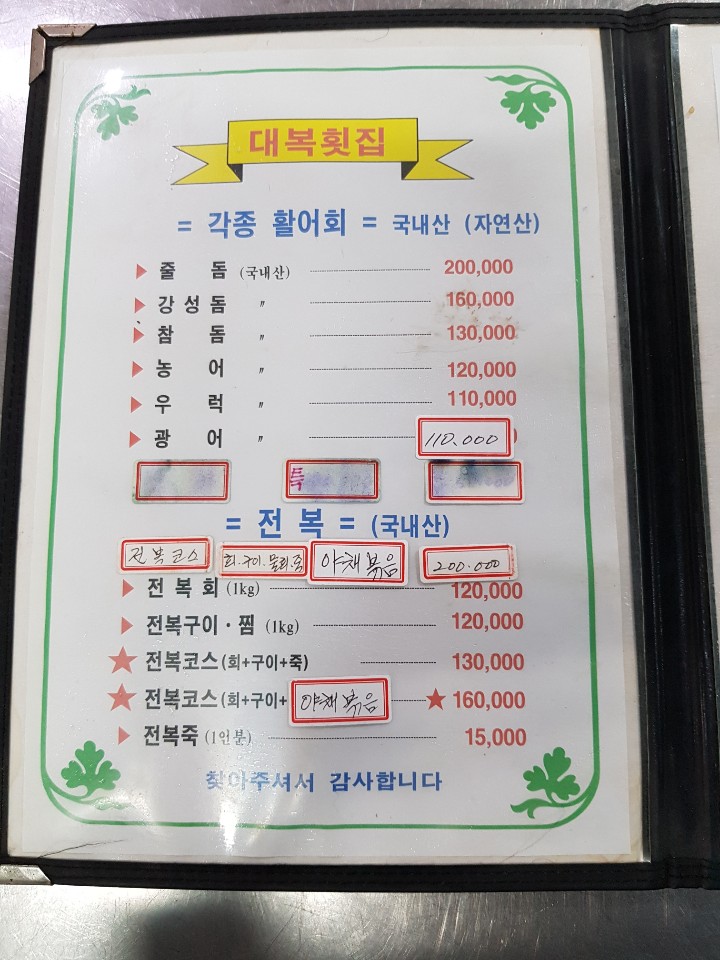 대복횟집
= 각종 활어회 = 국내산 (자연산)
줄 돔 (국내산) 200,000
강성돔 〃 160,000
참 돔 〃 130,000
농 어 〃 120,000
우 럭 〃 110,000
광 어 〃 110.000
특
= 전 복 = (국내산)
전복코스 회.구이.물회.죽 야채볶음 200.000
전복회 (1kg) 120,000
전복구이·찜 (1kg) 120,000
전복코스 (회+구이+죽) 130,000
전복코스 (회+구이+ 야채볶음 160,000
전복죽 (1인분) 15,000
찾아주셔서 감사합니다